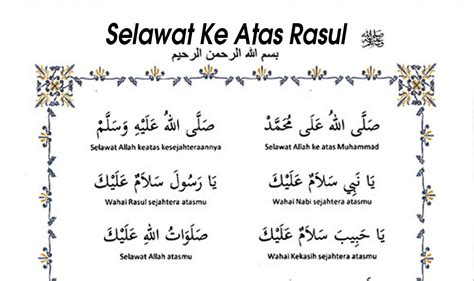 Selawat Ke Atas Rasul ﷺ
بسم الله الرحمن الرحيم
صَلَّى اللهُ عَلَى مُحَمَّدْ صَلَّى اللهُ عَلَيْهِ وَسَلَّمْ
Selawat Allah ke atas Muhammad Selawat Allah keatas kesejahteraannya
يَا نَبِي سَلَامٌ عَلَيْكَ يَا رَسُولَ سَلَامٌ عَلَيْكَ
Wahai Nabi sejahtera atasmu Wahai Rasul sejahtera atasmu
يَا حَبِيبَ سَلَامٌ عَلَيْكَ صَلَوَاتُ اللهِ عَلَيْكَ
Wahai Kekasih sejahtera atasmu Selawat Allah atasmu